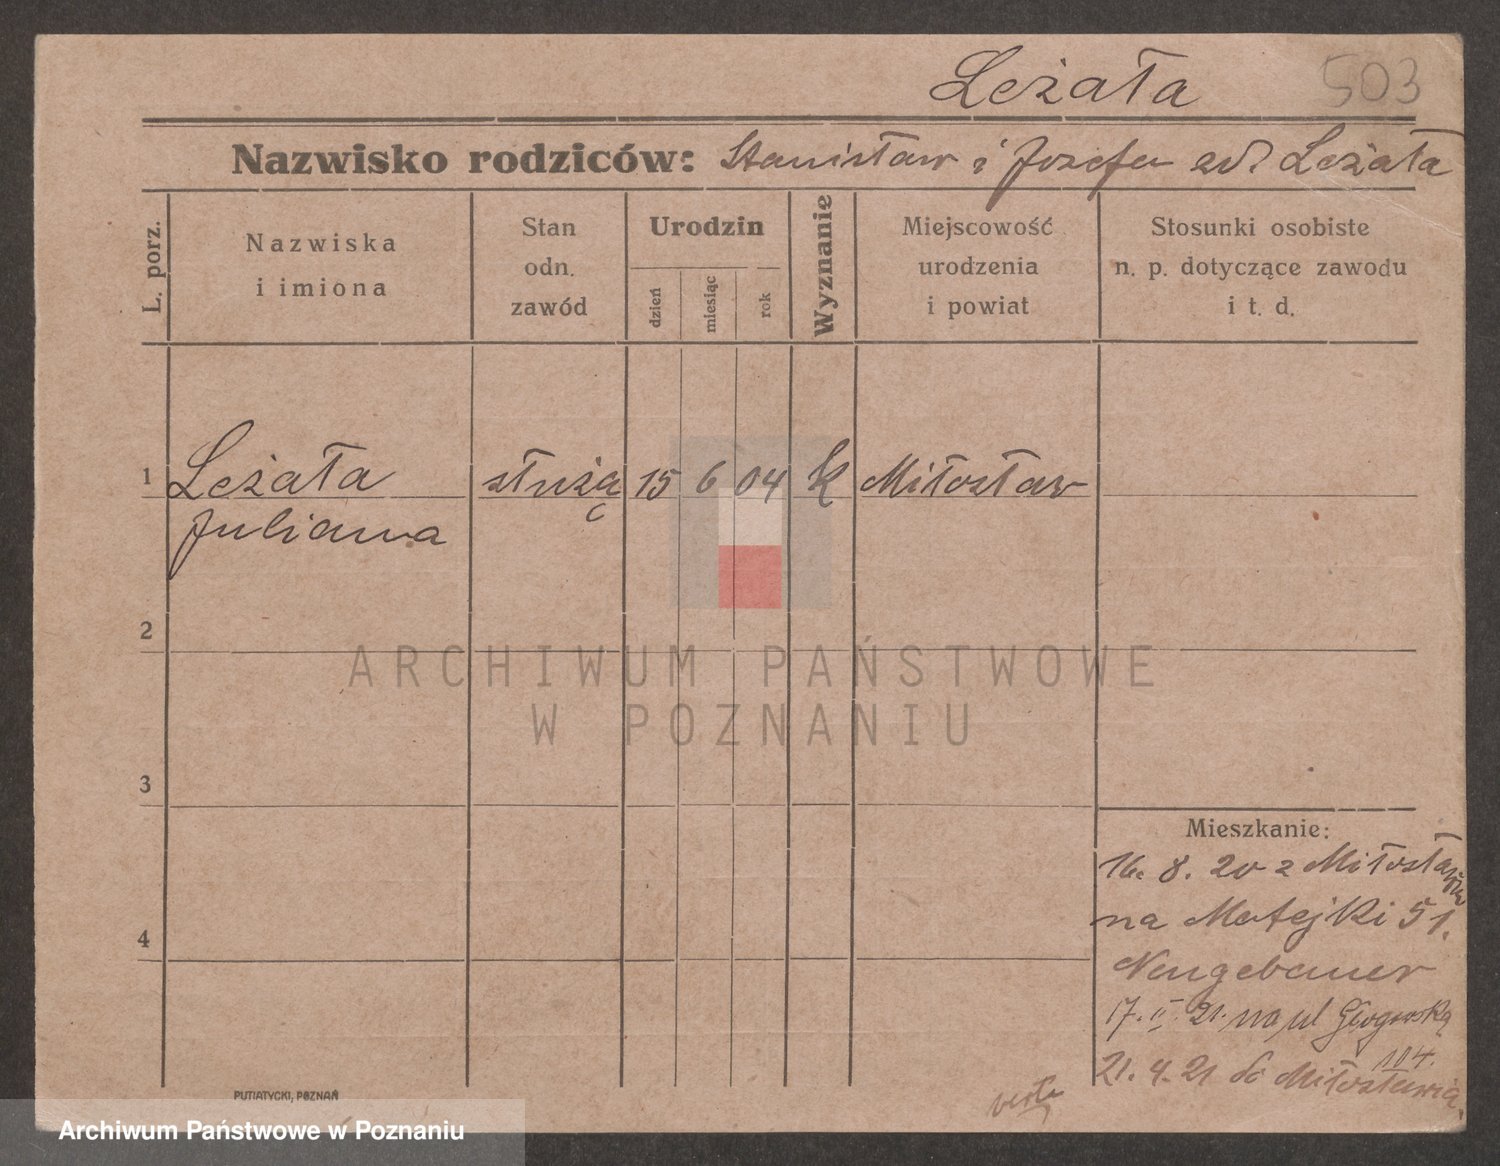 Leżała 503
Nazwisko rodziców: Stanisław i Józefa zd. Leżała
L. porz.
Nazwiska
i imiona
Stan
odn.
zawód
Urodzin
dzień
miesiąc
rok
Wyznanie
Miejscowość
urodzenia
i powiat
Stosunki osobiste
n. p. dotyczące zawodu
i t. d.
1 Leżała służą 15 6 04 k Miłosław
c
Juliama
2
ARCHIWUM PAŃSTWOWE
W POZNANIU
3
Mieszkanie:
16. 8. 20 z Miłosła
na Matejki 51.
4
Neugebauer
17. II. 21. na ul Głogowską
104.
21. 4. 21 do Miłosławia.
PUTIATYCKI, POZNAŃ
verte
Archiwum Państwowe w Poznaniu